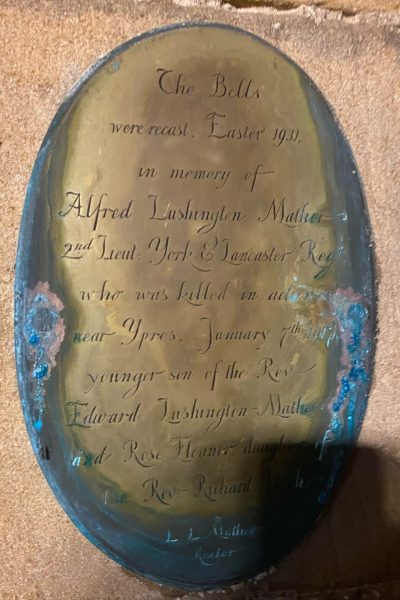 The Bells
were recast, Easter 1931,
in memory of
Alfred Lushington Mather
2nd Lieut. York & Lancaster Reg
who was killed in
near Ypres, January 7th
younger son of the Rev
Edward Lushington Mather
and Rose Eleanor daughter of
the Rev Richard
L L Mather
Rector